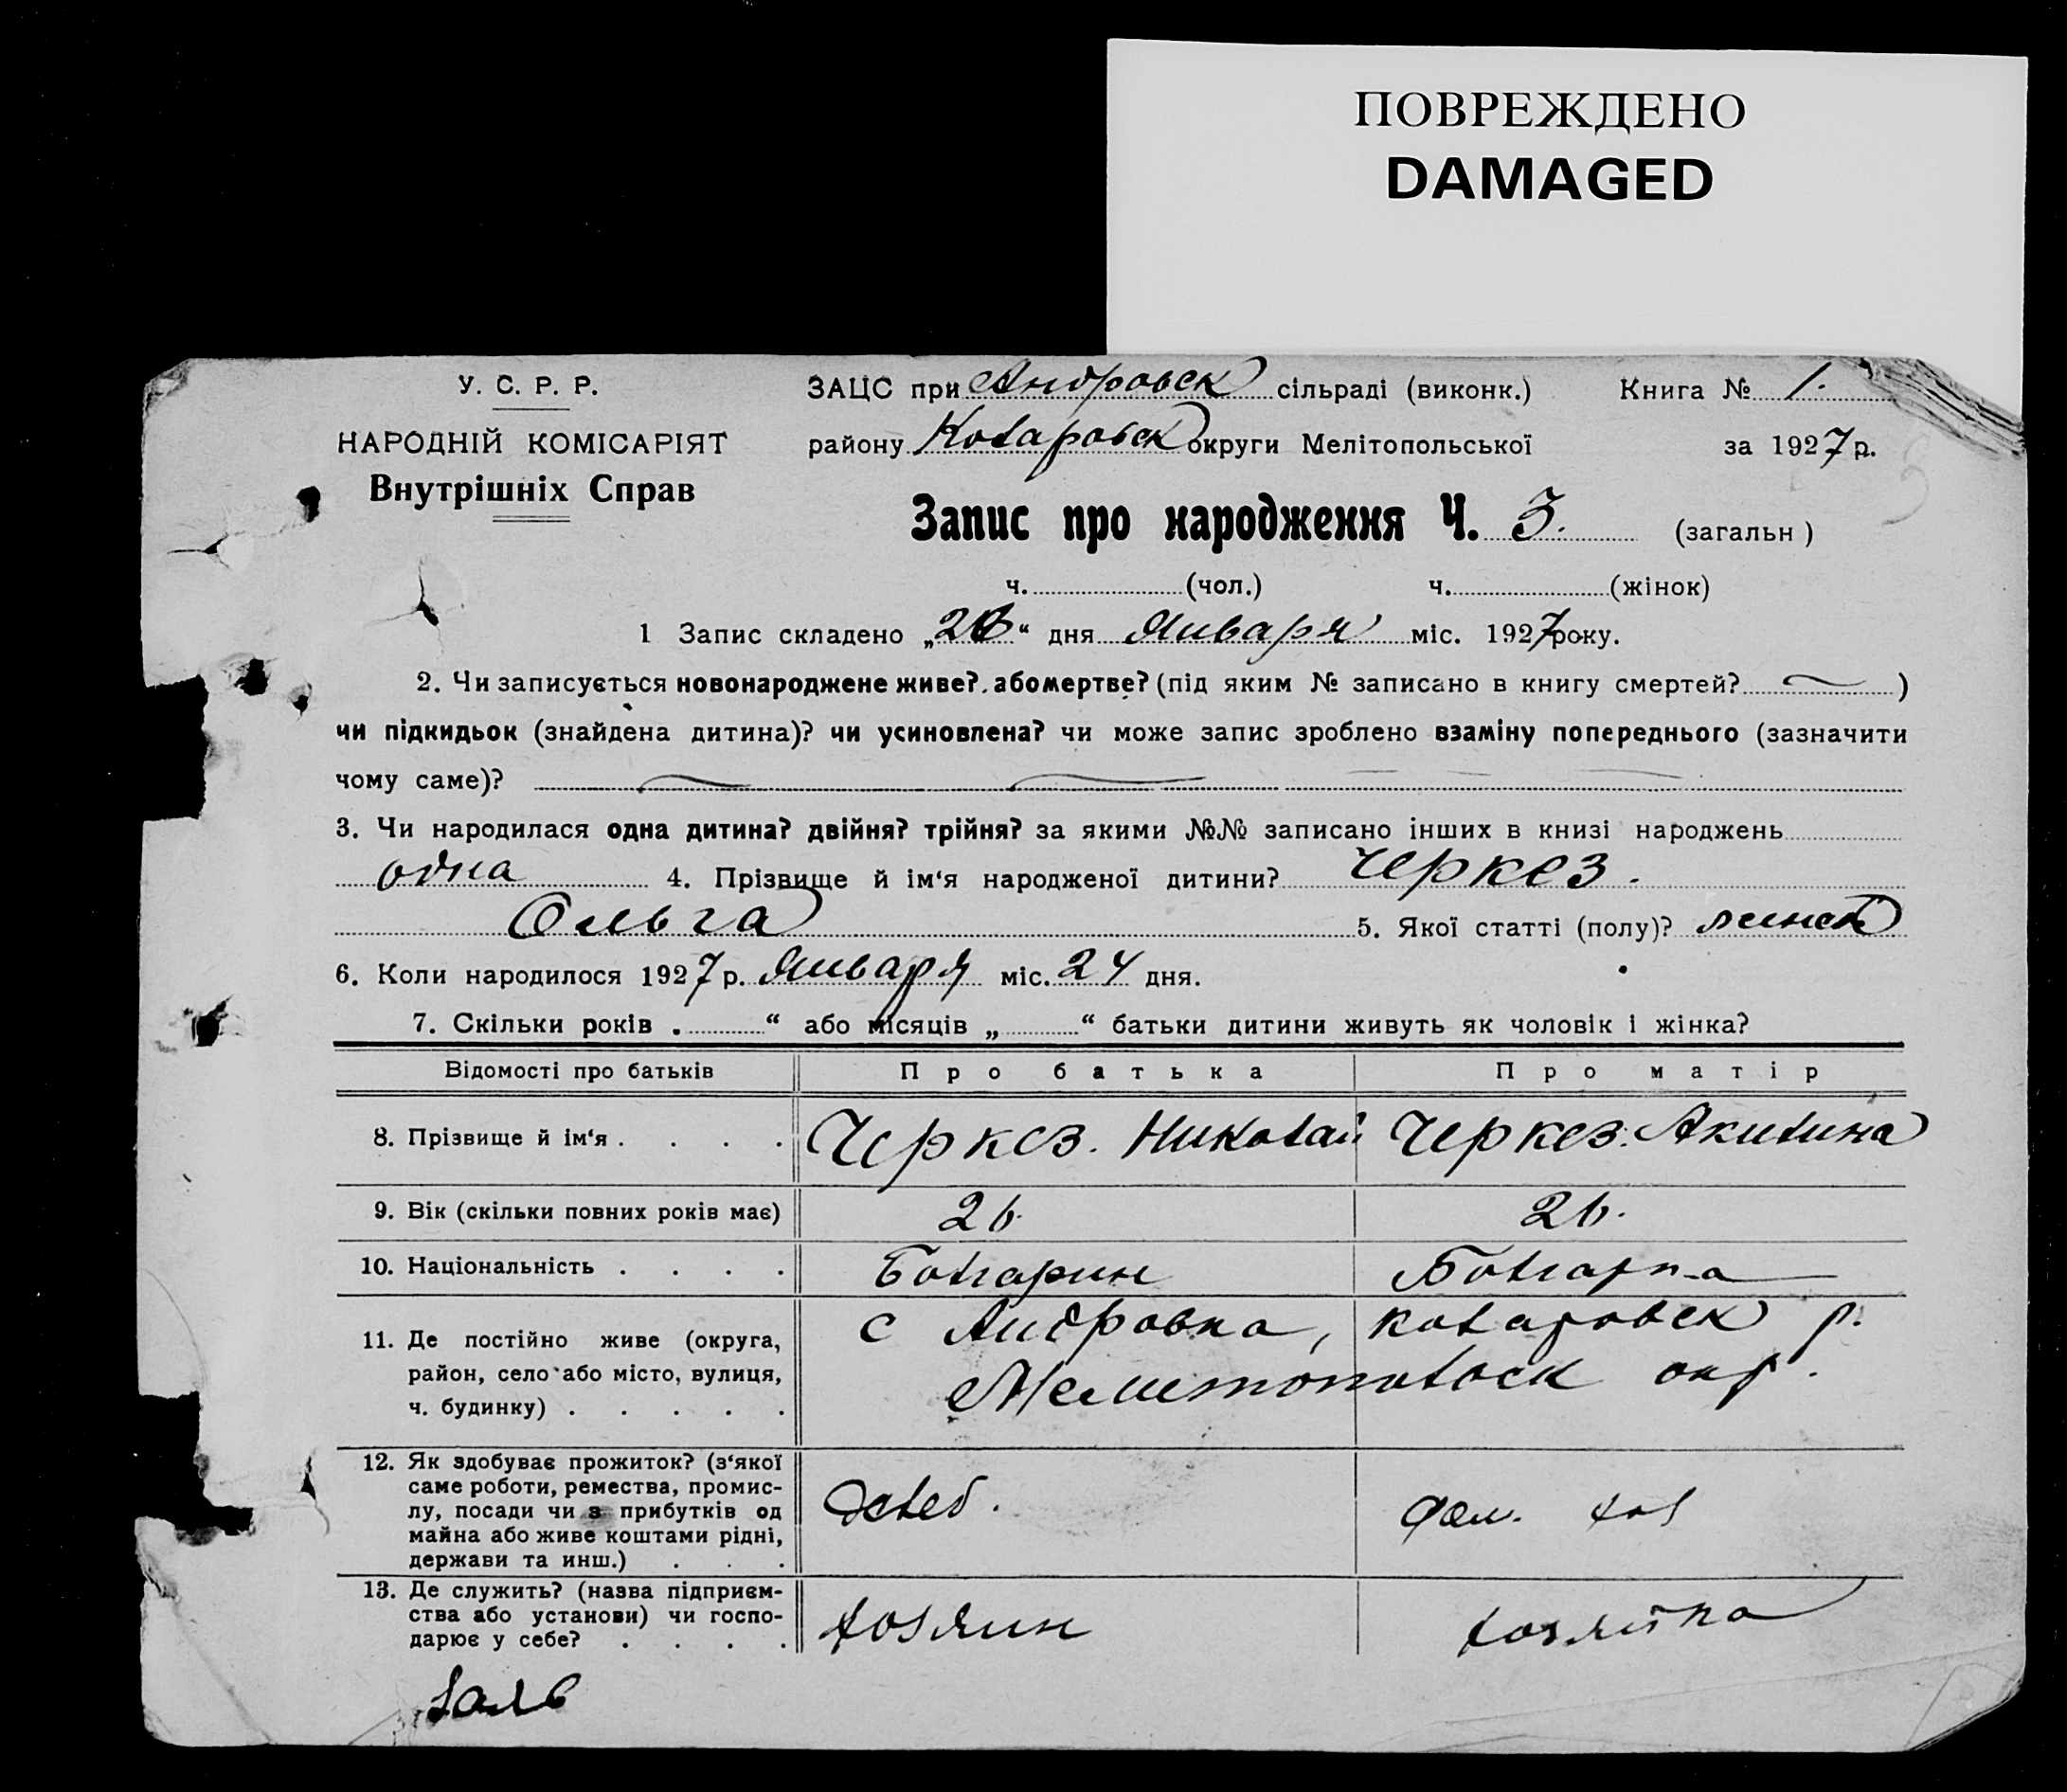 ПОВРЕЖДЕНО
DAMAGED
У. С. Р. Р.
НАРОДНІЙ КОМІСАРІЯТ
Внутрішніх Справ
ЗАЦС при Андровск сільраді (виконк.) Книга № 1.
району Коларовск округи Мелітопольської за 1927 р.
Запис про народження Ч. 3. (загальн )
ч. (чол.) ч. (жінок)
1 Запис складено „ “ дня Января міс. 1927 року.
2. Чи записується новонароджене живе?, або мертве? (під яким № записано в книгу смертей? )
чи підкидьок (знайдена дитина)? чи усиновлена? чи може запис зроблено взаміну попереднього (зазначити
чому саме)?
3. Чи народилася одна дитина? двійня? трійня? за якими №№ записано інших в книзі народжень
одна 4. Прізвище й ім‘я народженої дитини? Черкез.
Ольга 5. Якої статті (полу)? женск
6. Коли народилося 1927 р. Января міс. 24 дня.
7. Скільки років „ “ або місяців „ “ батьки дитини живуть як чоловік і жінка?
Відомості про батьків Про батька Про матір
8. Прізвище й ім‘я . . . . Черкез. Николай Черкез. Акилина
9. Вік (скільки повних років має) 26. 26.
10. Національність . . . . Болгарин Болгарка
11. Де постійно живе (округа,
район, село або місто, вулиця,
ч. будинку) . . . . .
с Андровка, коларовск р.
Мелитопольск окр.
12. Як здобуває прожиток? (з‘якої
саме роботи, ремества, промис-
лу, посади чи з прибутків од
майна або живе коштами рідні,
держави та инш.) . . .
хлеб. дом. хоз
13. Де служить? (назва підприєм-
ства або установи) чи госпо-
дарює у себе? . . . .
хозяин хозяйка